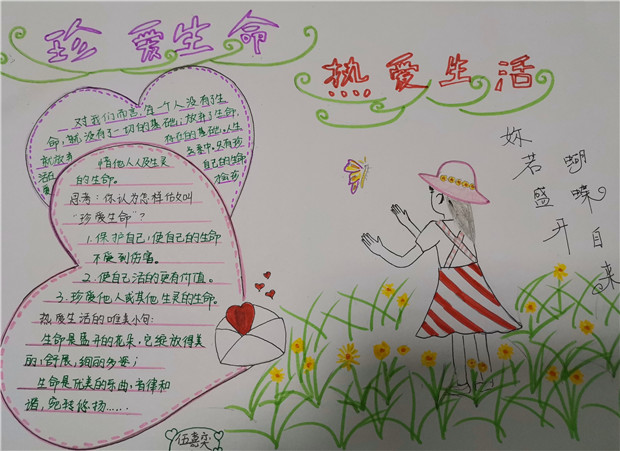 珍爱生命
热爱生活
对我们而言,每一个人没有了生
命,就没有了一切的基础;放弃了生命,
就放弃
存在的基础。人生
活的
自己的生命
惜他人及生灵
的生命。
思考:你认为怎样怡叫
“珍爱生命”?
1.保护自己,使自己的生命
不受到伤害。
2.使自己活的更有价值。
3.珍爱他人或其他生灵的生命。
热爱生活的唯美小句:
生命是盛开的花朵,它绽放得美
丽,舒展,绚丽多姿;
生命是优美的乐曲,音律和
谐,宛转悠扬……
妳若盛开
蝴蝶自来